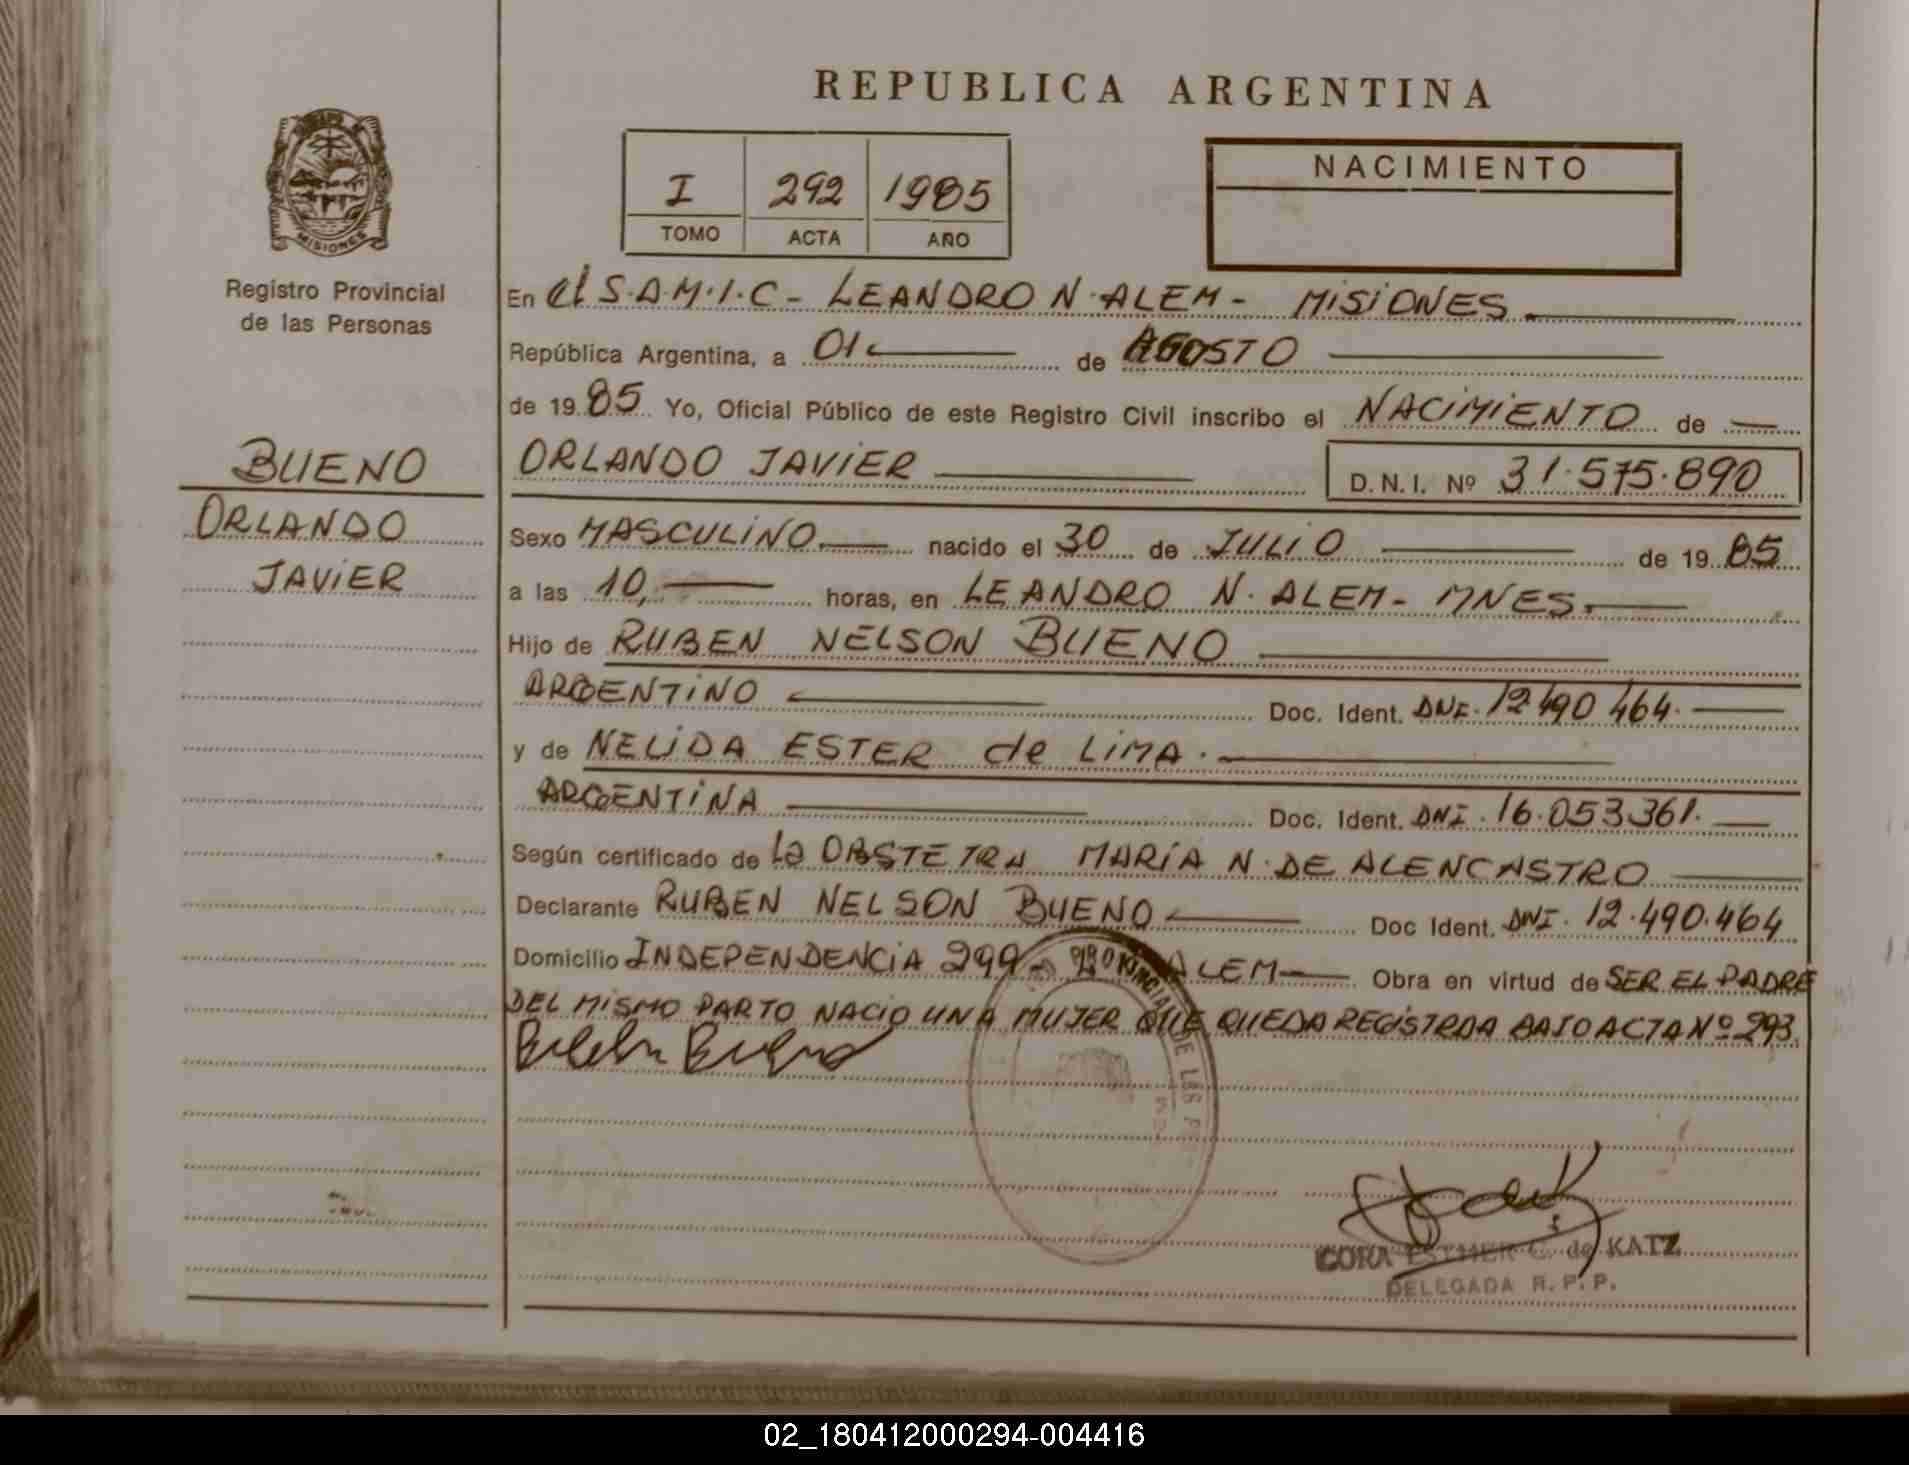 REPUBLICA ARGENTINA
I 292 1985
TOMO ACTA AÑO
NACIMIENTO
MISIONES
Registro Provincial
de las Personas
BUENO
ORLANDO
JAVIER
En el S.A.M.I.C - LEANDRO N. ALEM - MISIONES
República Argentina, a 01 de AGOSTO
de 1985 Yo, Oficial Público de este Registro Civil inscribo el NACIMIENTO de
ORLANDO JAVIER D.N.I. Nº 31.575.890
Sexo MASCULINO nacido el 30 de JULIO de 1985
a las 10, horas, en LEANDRO N. ALEM - MNES.
Hijo de RUBEN NELSON BUENO
ARGENTINO Doc. Ident. DNI. 12 490 464.
y de NELIDA ESTER de LIMA.
ARGENTINA Doc. Ident. DNI. 16.053.361.
Según certificado de La OBSTETRA MARÍA N. DE ALENCASTRO
Declarante RUBEN NELSON BUENO Doc Ident. DNI. 12.490.464
Domicilio INDEPENDENCIA 299 - ALEM Obra en virtud de SER EL PADRE
DEL MISMO PARTO NACIO UNA MUJER QUE QUEDA REGISTRDA BAJO ACTA Nº 293.
PROVINCIAL DE LAS
CORA ESTHER C. de KATZ
DELEGADA R. P. P.
02_180412000294-004416